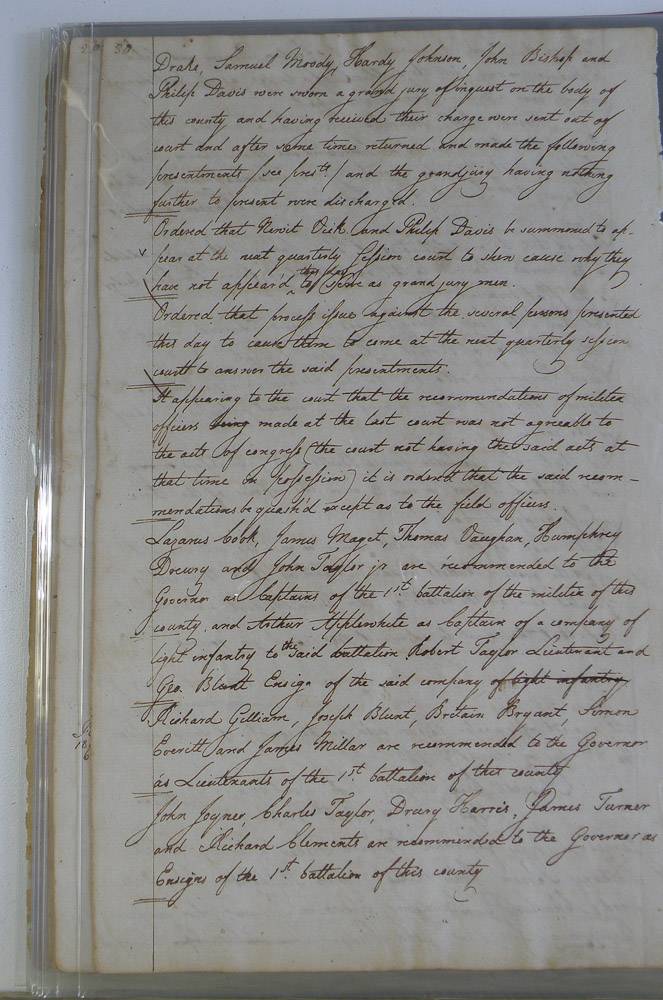 Drake, Samuel Moody, Hardy Johnson, John Bishop and
Philip Davis were sworn a grand jury of inquest on the body of
this county and having received their charge were sent out of
court and after some time returned and made the following
presentments (see prests.) and the grand jury having nothing
further to present were discharged.
Ordered that Newit and Philip Davis be summoned to ap-
pear at the next quarterly Session court to shew cause why they
have not appear'd this day to serve as grand jury men.
Ordered that process issue against the several persons presented
this day to cause them to come at the next quarterly session
court to answer the said presentments.
It appearing to the court that the recommendations of militia
officers being made at the last court was not agreeable to
the acts of congress (the court not having the said acts at
that time in possession) it is ordered that the said recom-
mendations be quash'd except as to the field officers.
Lazarus Cook, James Maget, Thomas Vaughan, Humphrey
Drewry and John Taylor jr are recommended to the
Governor as Captains of the 1st. battalion of the militia of this
county and Arthur Applewhite as Captain of a company of
light infantry to the said battalion Robert Taylor Lieutenant and
Geo. Blunt Ensign of the said company of light infantry
Richard Gilliam, Joseph Blunt, Britain Bryant, Simon
Everitt and James Millar are recommended to the Governor
as Lieutenants of the 1st. battalion of this county
John Joyner, Charles Taylor, Drury Harris, James Turner
and Richard Clements are recommended to the Governor as
Ensigns of the 1st. battalion of this county